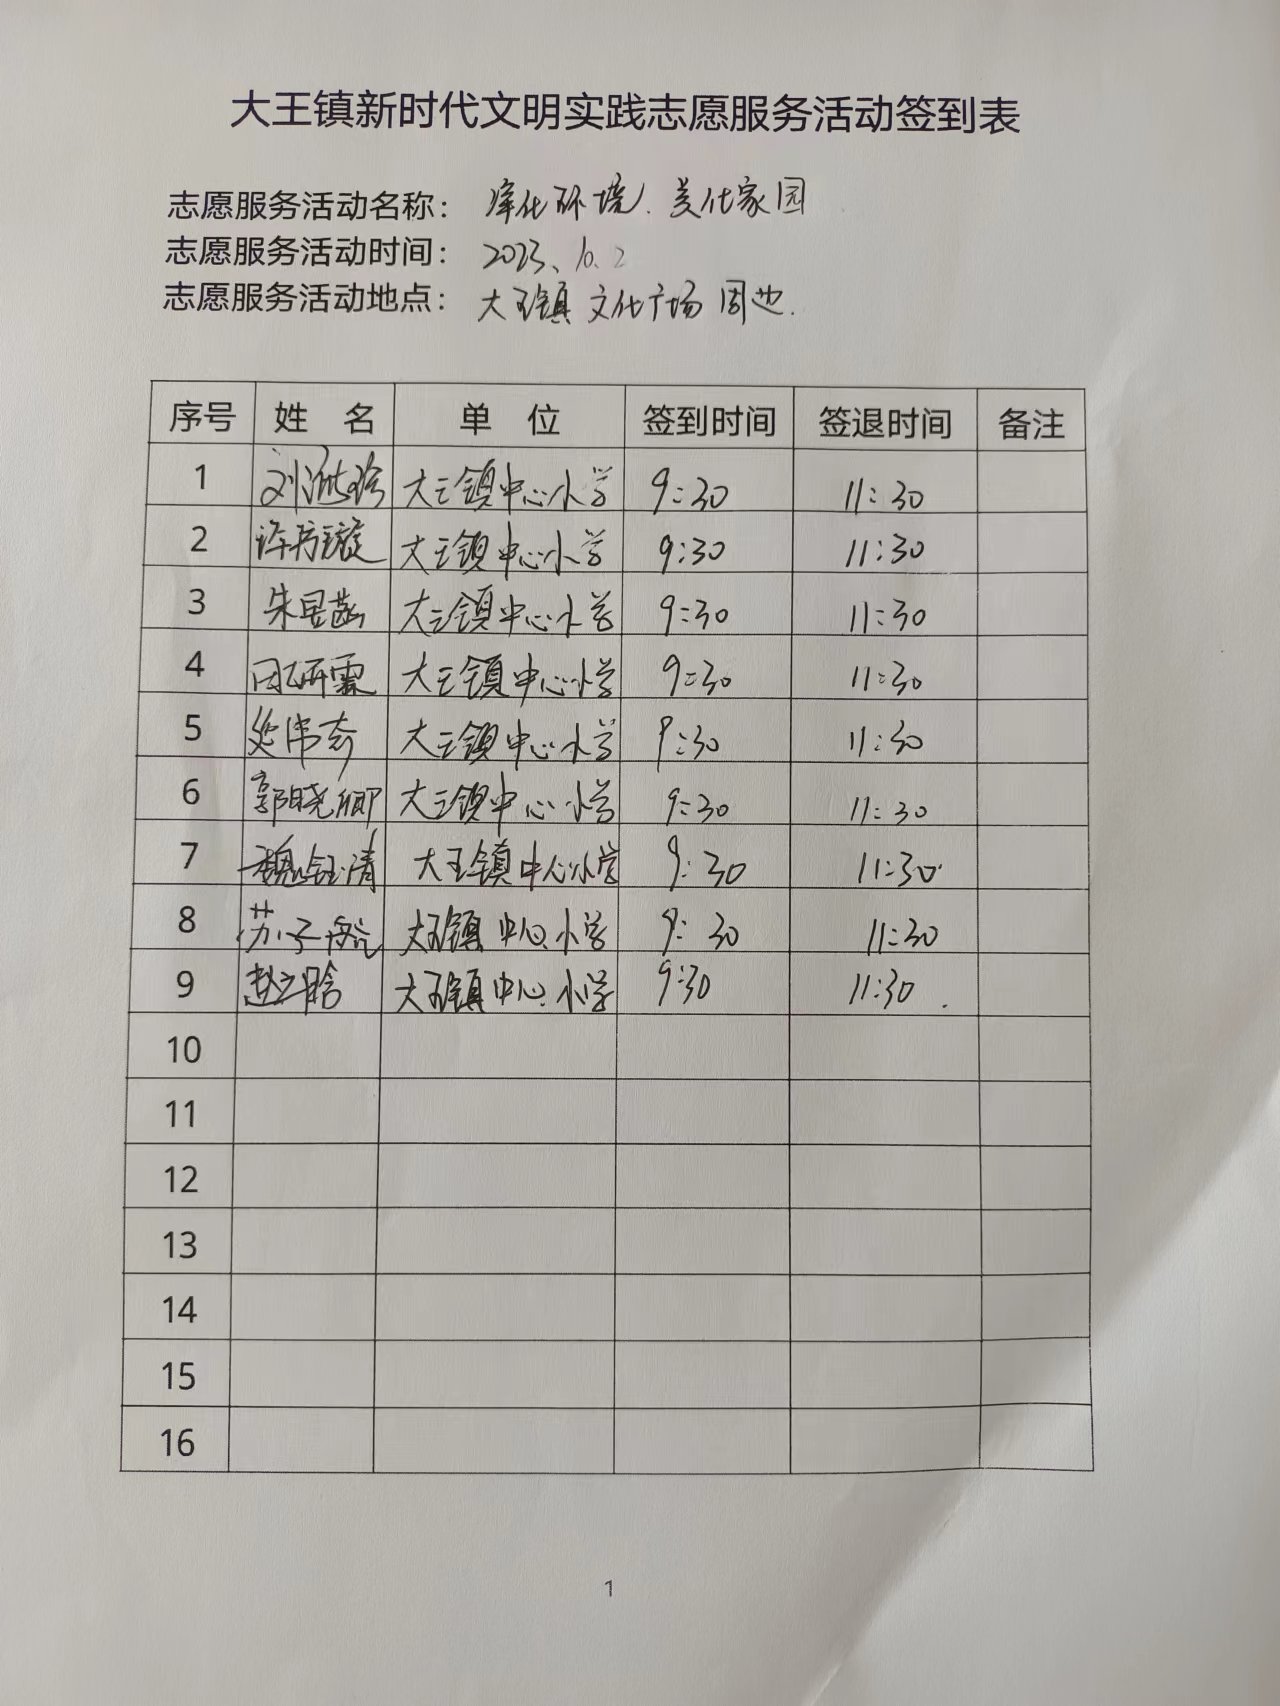 大王镇新时代文明实践志愿服务活动签到表
志愿服务活动名称： 净化环境、美化家园
志愿服务活动时间： 2023、10、2
志愿服务活动地点： 大王镇文化广场周边.
序号 姓 名 单 位 签到时间 签退时间 备注
1 大王镇中心小学 9:30 11:30
2 大王镇中心小学 9:30 11:30
3 朱昱菡 大王镇中心小学 9:30 11:30
4 大王镇中心小学 9:30 11:30
5 延伟奇 大王镇中心小学 9:30 11:30
6 郭晓卿 大王镇中心小学 9:30 11:30
7 魏钰清 大王镇中心小学 9:30 11:30
8 大王镇中心小学 9:30 11:30
9 赵立晗 大王镇中心小学 9:30 11:30
10
11
12
13
14
15
16
1